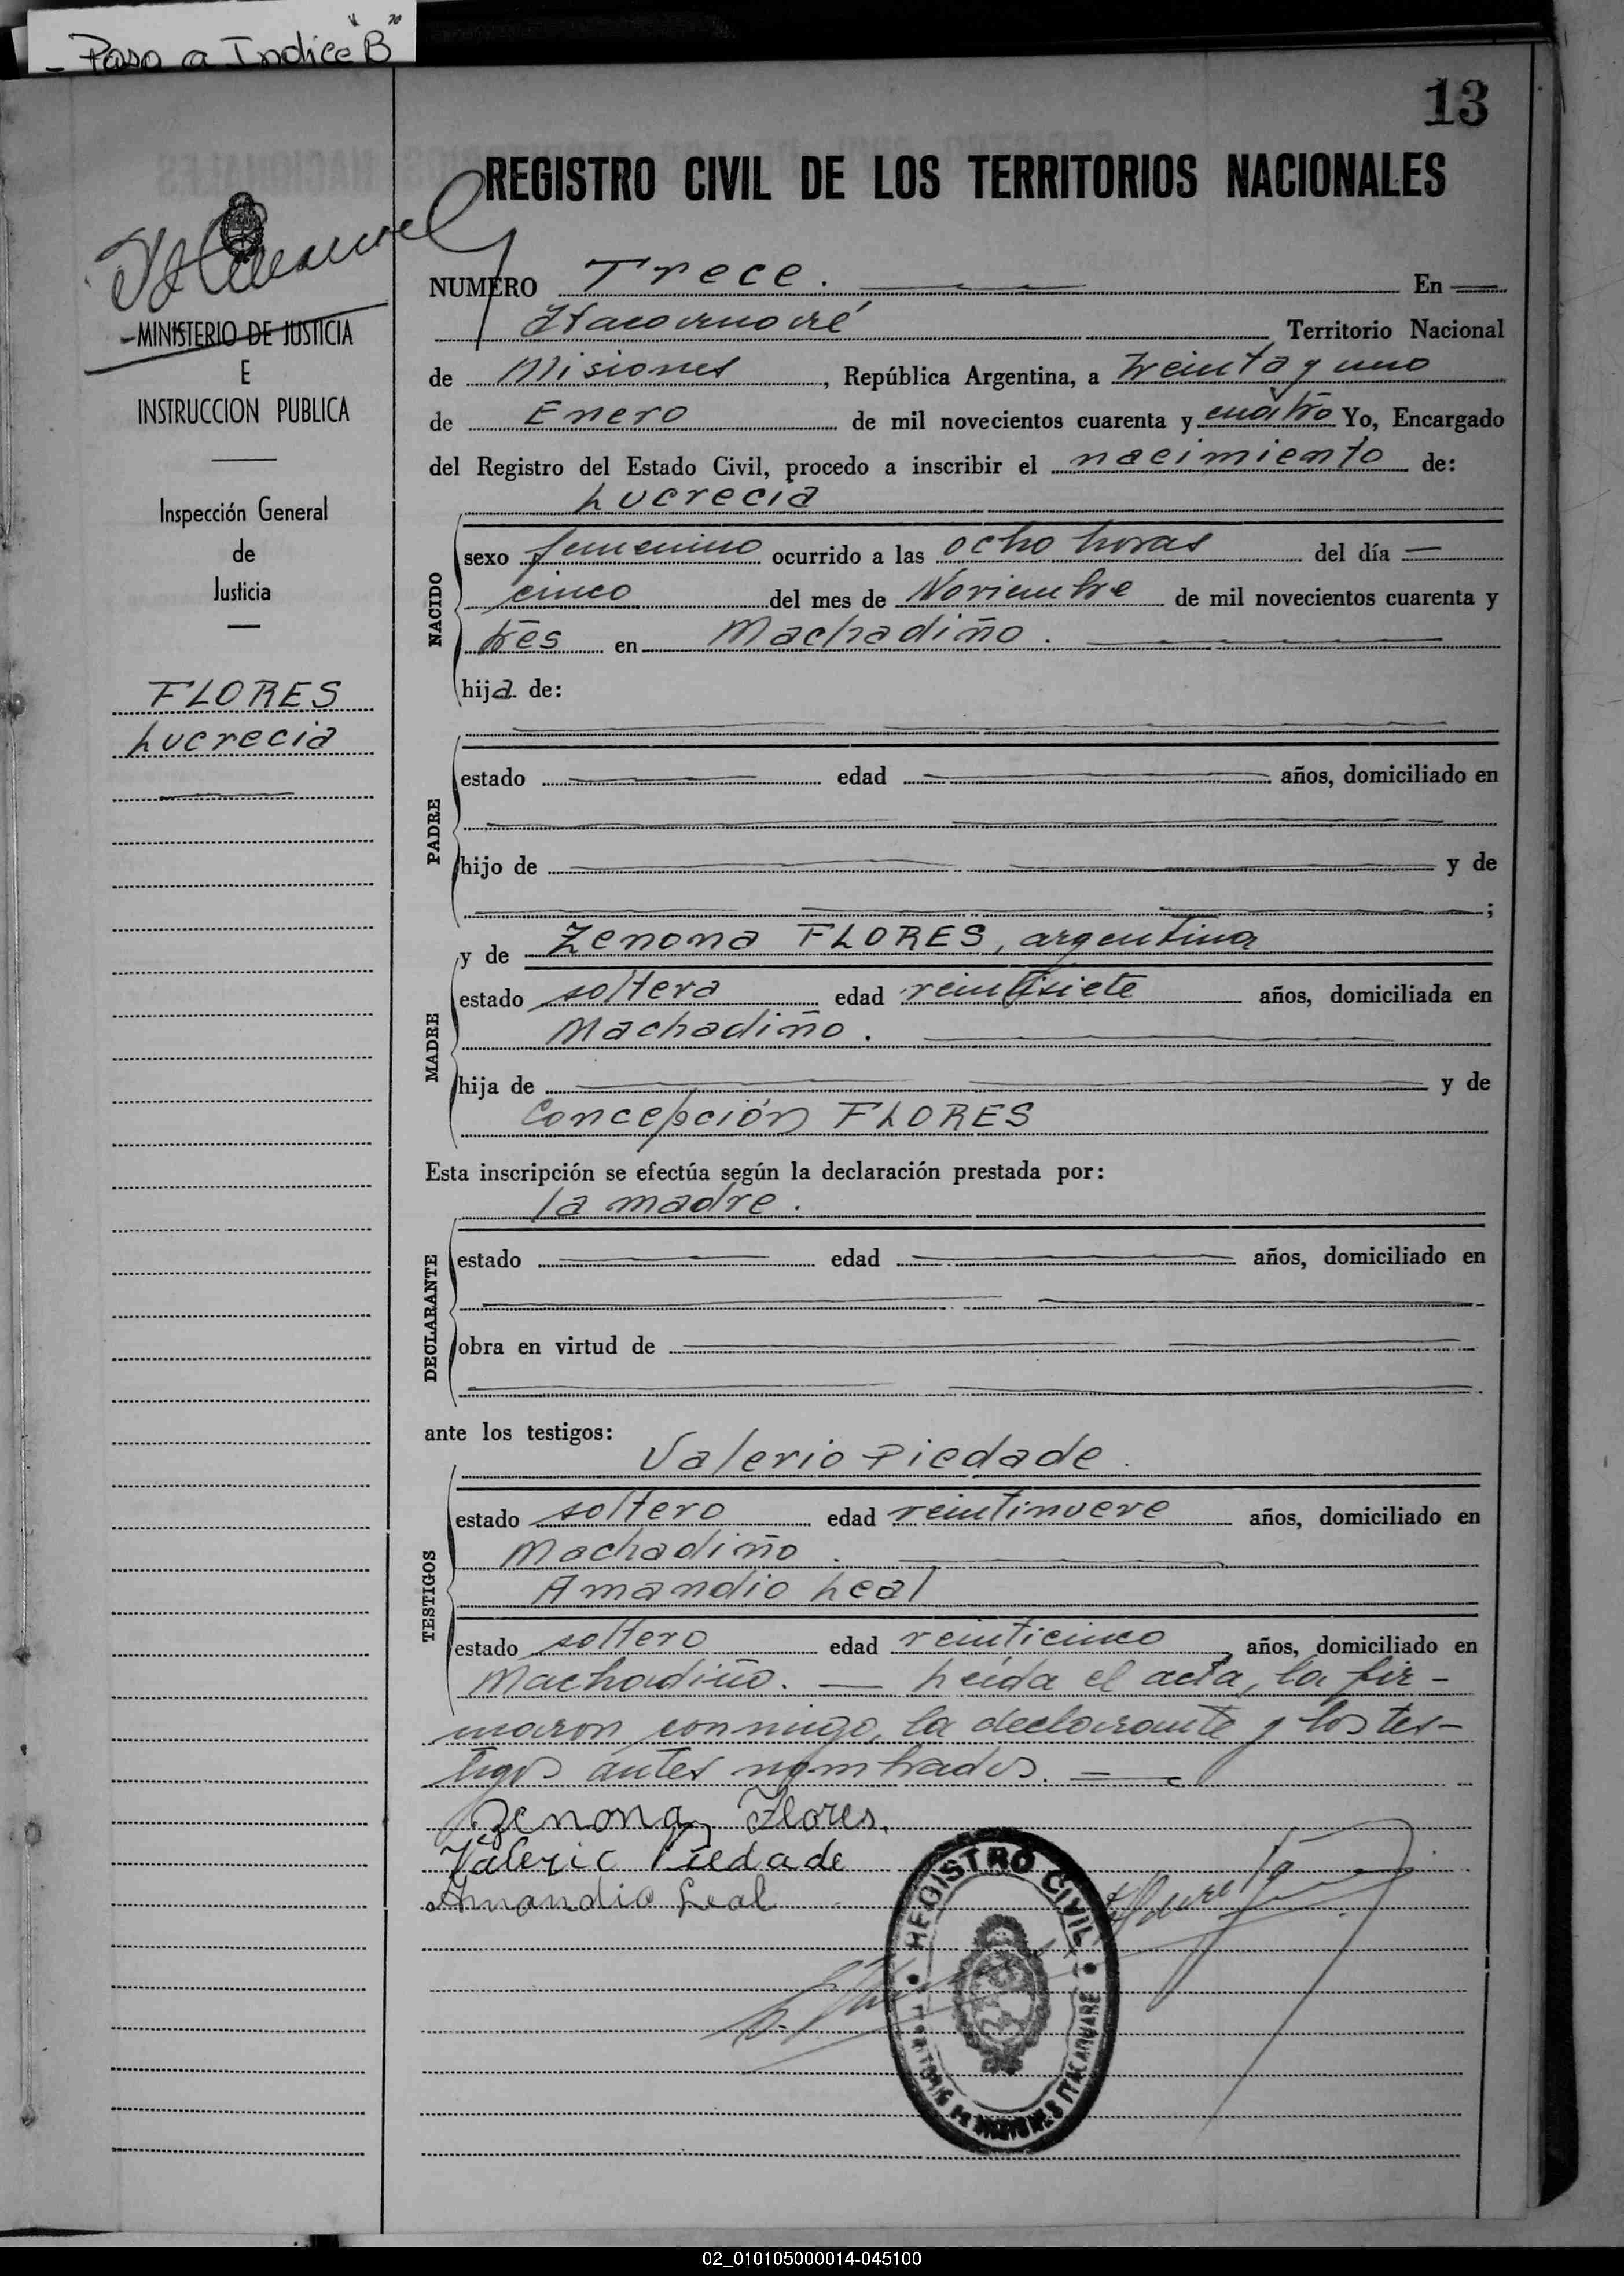 - Paso a Indice B
13
REGISTRO CIVIL DE LOS TERRITORIOS NACIONALES
MINISTERIO DE JUSTICIA
E
INSTRUCCION PUBLICA
Inspección General
de
Justicia
FLORES
Lucrecia
NUMERO Trece. En
Itacaruaré Territorio Nacional
de Misiones, República Argentina, a treinta y uno
de Enero de mil novecientos cuarenta y cuatro Yo, Encargado
del Registro del Estado Civil, procedo a inscribir el nacimiento de:
Lucrecia
NACIDO
sexo femenino ocurrido a las ocho horas del día
cinco del mes de Noviembre de mil novecientos cuarenta y
tres en Machadiño.
hija de:
PADRE
estado edad años, domiciliado en
hijo de y de
;
MADRE
y de Zenona FLORES, argentina
estado soltera edad veintisiete años, domiciliada en
Machadiño.
hija de y de
Concepción FLORES
Esta inscripción se efectúa según la declaración prestada por:
la madre.
DECLARANTE
estado edad años, domiciliado en
obra en virtud de
ante los testigos:
Valerio Piedade.
TESTIGOS
estado soltero edad veintinueve años, domiciliado en
Machadiño.
Amandio Leal
estado soltero edad veinticinco años, domiciliado en
Machadiño. — Leída el acta, la fir-
maron conmigo, la declarante y los tes-
tigos antes nombrados. =
Zenona Flores.
Valerio Piedade
Amandio Leal
REGISTRO CIVIL
TERRITORIO DE MISIONES ITACARUARE
02_010105000014-045100